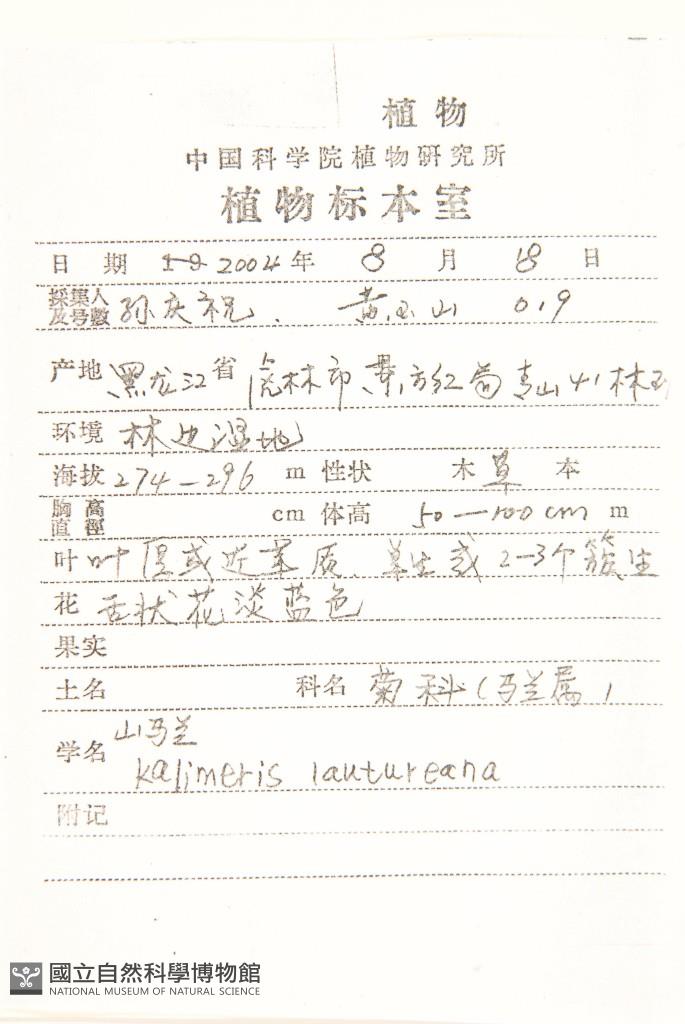 植物
中国科学院植物研究所
植物标本室
日期 19 2004年 8月 18日
採集人及号數 孙庆祝、 黄玉山 019
产地 黑龙江省 虎林市 东方红 青山 林
环境 林边湿地
海拔 274-296 m 性状 木草本
胸高直徑 cm 体高 50-100cm m
叶 叶厚或近革质、单生或2-3个簇生
花 舌状花淡蓝色
果实
土名 科名 菊科(马兰属)
学名 山马兰
kalimeris lautureana
附记
國立自然科學博物館
NATIONAL MUSEUM OF NATURAL SCIENCE